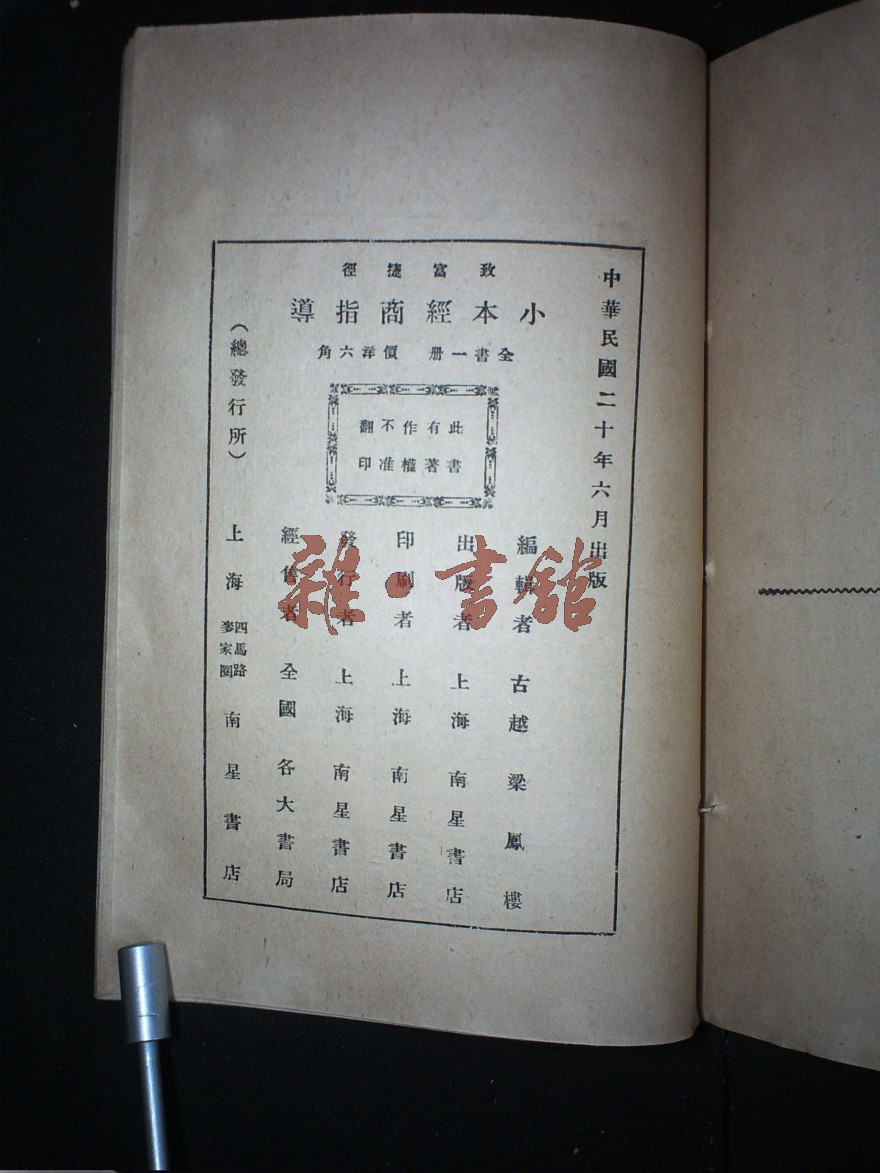 中華民國二十年六月出版
致富捷徑
小本經商指導
全書一册 價洋六角
此書有著作權不准翻印
編輯者 古越 梁鳳樓
出版者 上海 南星書店
印刷者 上海 南星書店
發行者 上海 南星書店
經售者 全國 各大書局
(總發行所) 上海 四馬路麥家圈 南星書店
雜·書館